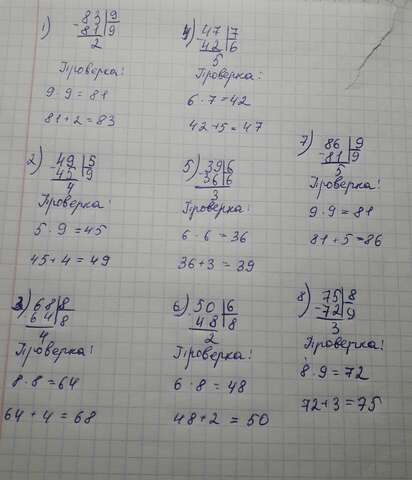 1) - 83 | 9
81 | 9
2
Проверка:
9 · 9 = 81
81 + 2 = 83
2) - 49 | 5
45 | 9
4
Проверка:
5 · 9 = 45
45 + 4 = 49
3) - 68 | 8
64 | 8
4
Проверка:
8 · 8 = 64
64 + 4 = 68
4) - 47 | 7
42 | 6
5
Проверка:
6 · 7 = 42
42 + 5 = 47
5) - 39 | 6
36 | 6
3
Проверка:
6 · 6 = 36
36 + 3 = 39
6) - 50 | 6
48 | 8
2
Проверка:
6 · 8 = 48
48 + 2 = 50
7) - 86 | 9
81 | 9
5
Проверка:
9 · 9 = 81
81 + 5 = 86
8) - 75 | 8
72 | 9
3
Проверка:
8 · 9 = 72
72 + 3 = 75